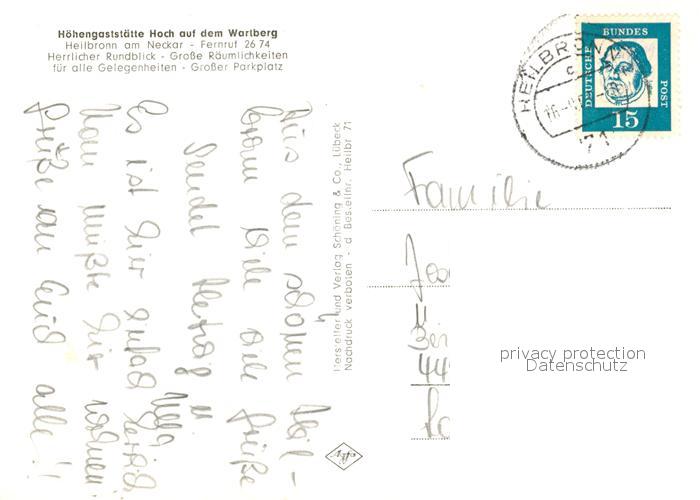 Höhengaststätte Hoch auf dem Wartberg
Heilbronn am Neckar - Fernruf 26 74
Herrlicher Rundblick - Große Räumlichkeiten
für alle Gelegenheiten - Großer Parkplatz
Aus dem schönen Heil-
bronn viele liebe Grüße
sendet
Es ist hier einfach herrlich
Man müßte hier wohnen
Grüße an Euch alle!!
Hersteller und Verlag Schöning & Co., Lübeck
Nachdruck verboten - d Bestellnr. Heilbr 71
Agfa
HEILBRONN
c
71
DEUTSCHE BUNDES POST
15
Familie
privacy protection
Datenschutz